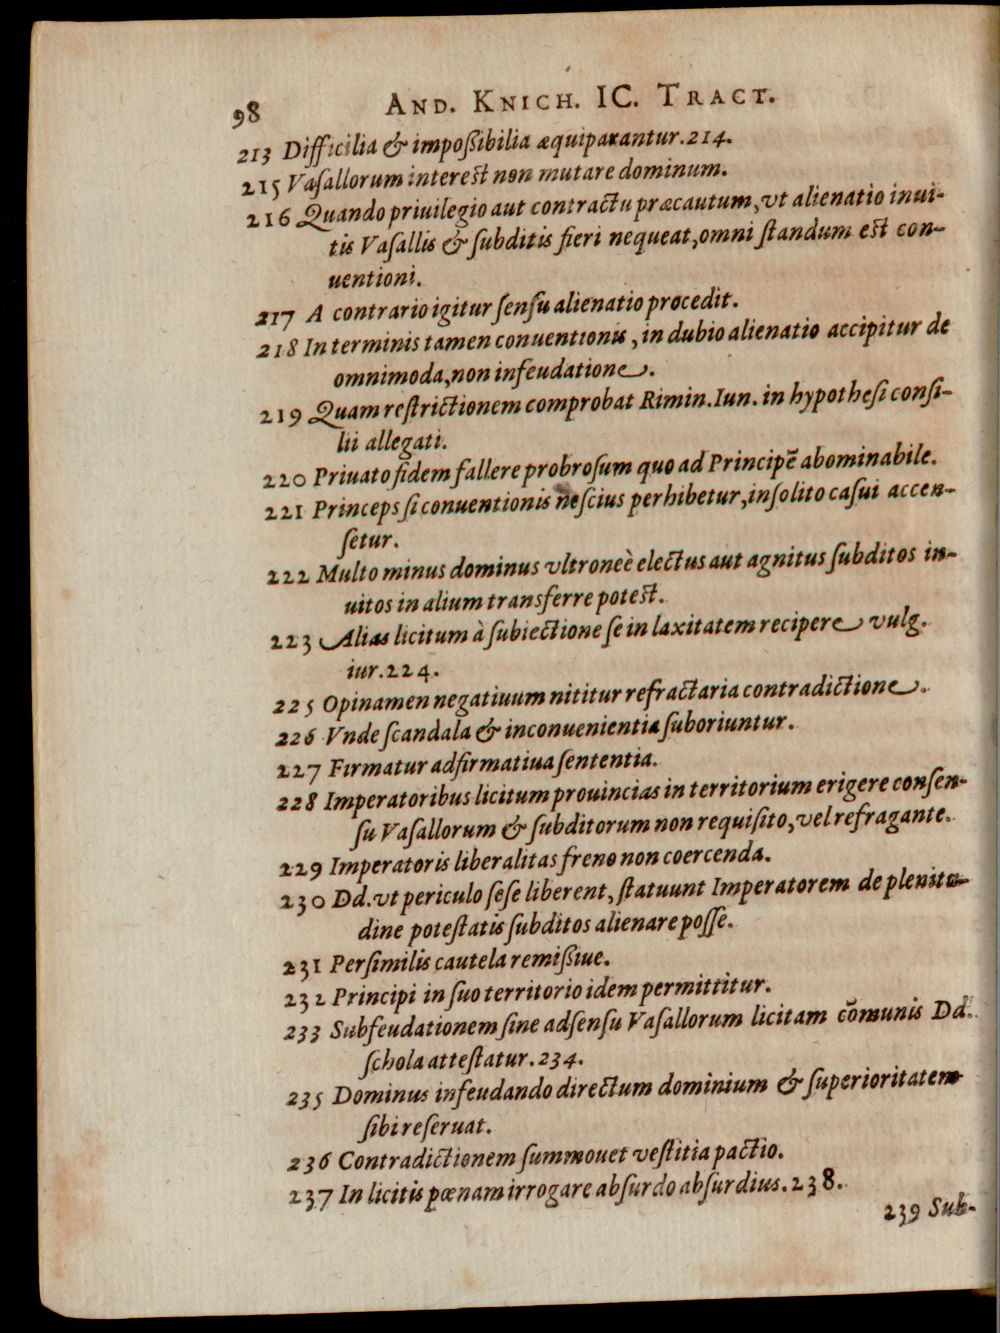 98 AND. KNICH. IC. TRACT.
213 Difficilia & impoſsibilia æquiparantur. 214.
215 Vaſallorum intereſt non mutare dominum.
216 Quando priuilegio aut contractu præcautum, vt alienatio inui-
tis Vaſallis & ſubditis fieri nequeat, omni ſtandum eſt con-
uentioni.
217 A contrario igitur ſenſu alienatio procedit.
218 In terminis tamen conuentionis, in dubio alienatio accipitur de
omnimoda, non infeudatione.
219 Quam reſtrictionem comprobat Rimin. Iun. in hypotheſi conſi-
lii allegati.
220 Priuato fidem fallere probroſum quo ad Principẽ abominabile.
221 Princeps ſi conuentionis neſcius perhibetur, inſolito caſui accen-
ſetur.
222 Multo minus dominus vltroneè electus aut agnitus ſubditos in-
uitos in alium transferre poteſt.
223 Alias licitum à ſubiectione ſe in laxitatem recipere vulg.
iur. 224.
225 Opinamen negatiuum nititur refractaria contradictione.
226 Vnde ſcandala & inconuenientia ſuboriuntur.
227 Firmatur adfirmatiua ſententia.
228 Imperatoribus licitum prouincias in territorium erigere conſen-
ſu Vaſallorum & ſubditorum non requiſito, vel refragante.
229 Imperatoris liberalitas freno non coercenda.
230 Dd. vt periculo ſeſe liberent, ſtatuunt Imperatorem de plenitu-
dine poteſtatis ſubditos alienare poſſe.
231 Perſimilis cautela remiſsiue.
232 Principi in ſuo territorio idem permittitur.
233 Subfeudationem ſine adſenſu Vaſallorum licitam cõmunis Dd.
ſchola atteſtatur. 234.
235 Dominus infeudando directum dominium & ſuperioritatem
ſibi reſeruat.
236 Contradictionem ſummouet veſtitia pactio.
237 In licitis pœnam irrogare abſurdo abſurdius. 238.
239 Sub-